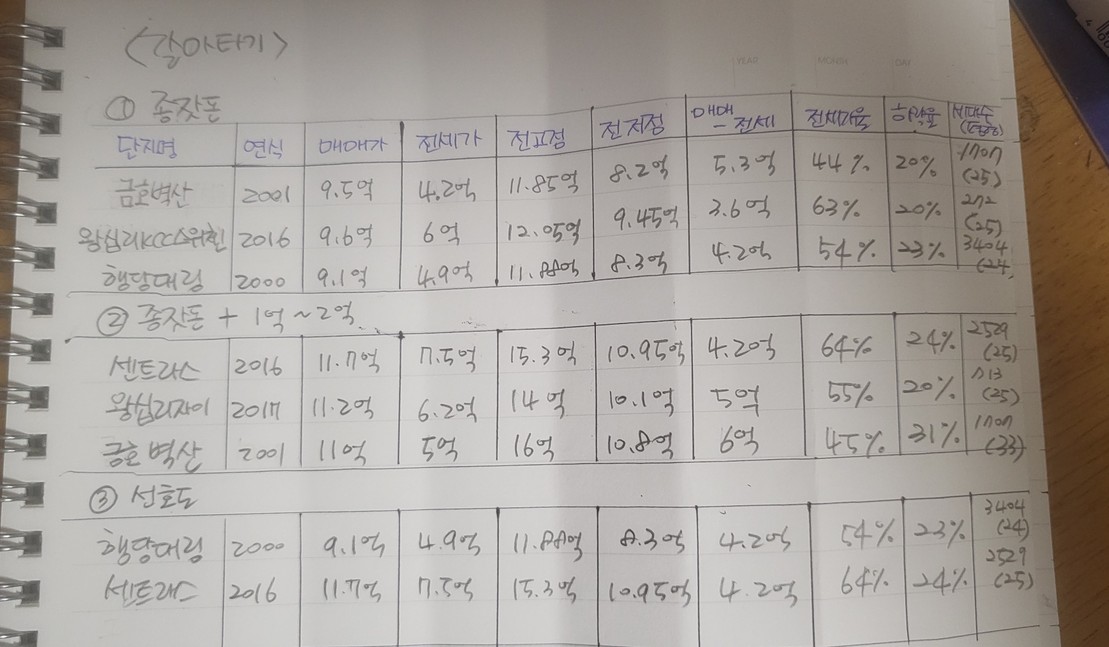 <갈아타기>
YEAR MONTH DAY
① 종잣돈
단지명 연식 매매가 전세가 전고점 전저점 매매-전세 전세가율 하락률 세대수(평형)
금호벽산 2001 9.5억 4.2억 11.85억 8.2억 5.3억 44% 20% 1707 (25)
왕십리KCC스위첸 2016 9.6억 6억 12.05억 9.45억 3.6억 63% 20% 272 (25)
행당대림 2000 9.1억 4.9억 11.88억 8.3억 4.2억 54% 23% 3404 (24
② 종잣돈 + 1억~2억
센트라스 2016 11.7억 7.5억 15.3억 10.95억 4.2억 64% 24% 2529 (25)
왕십리자이 2017 11.2억 6.2억 14억 10.1억 5억 55% 20% 713 (25)
금호벽산 2001 11억 5억 16억 10.8억 6억 45% 31% 1707 (33)
③ 선호도
행당대림 2000 9.1억 4.9억 11.88억 8.3억 4.2억 54% 23% 3404 (24)
센트라스 2016 11.7억 7.5억 15.3억 10.95억 4.2억 64% 24% 2529 (25)